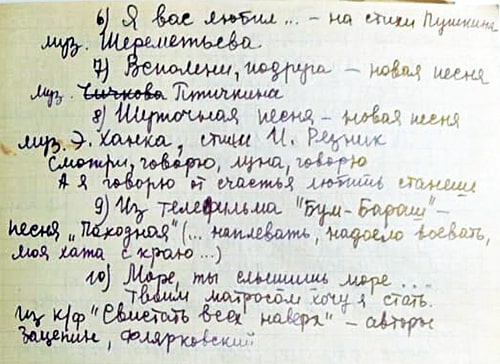 6) Я вас любил... – на стихи Пушкина
муз. Шереметьева
7) Вспомени, подруга – новая песня
муз. Чичкова Птичкина
8) Шуточная песня – новая песня
муз. Э. Ханка, стихи И. Резник
Смотри, говорю, луна, говорю
А я говорю от счастья любить станешь
9) Из телефильма "Бум-Бараш" –
песня „Походная" (... наплевать, надоело воевать,
моя хата с краю...)
10) Море, ты слышишь море...
Твоим матросом хочу я стать.
из к/ф "Свистать всех наверх" – авторы
Зацепин, Фолярковский